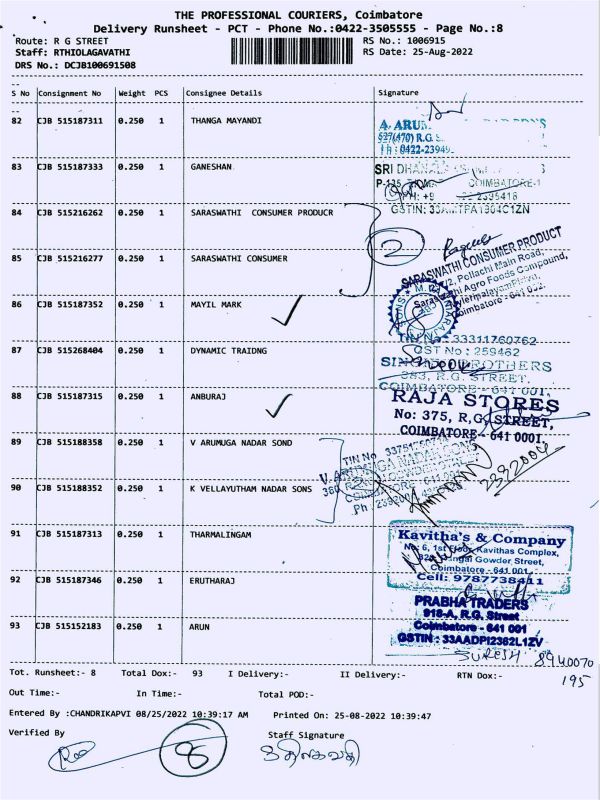 THE PROFESSIONAL COURIERS, Coimbatore
Delivery Runsheet - PCT - Phone No.:0422-3505555 - Page No.:8
Route: R G STREET
RS No.: 1006915
Staff: RTHIOLAGAVATHI
RS Date: 25-Aug-2022
DRS No.: DCJB100691508
S No Consignment No Weight PCS Consignee Details Signature
82 CJB 515187311 0.250 1 THANGA MAYANDI
A. ARUM
527(470) R.G.S
83 CJB 515187333 0.250 1 GANESHAN
SRI
COIMBATORE-1
84 CJB 515216262 0.250 1 SARASWATHI CONSUMER PRODUCR
GSTIN:
2
85 CJB 515216277 0.250 1 SARASWATHI CONSUMER
SARASWATHI CONSUMER PRODUCT
Pollachi Main Road,
Saraswathi Agro Foods Compound,
Coimbatore - 641
86 CJB 515187352 0.250 1 MAYIL MARK
33311760762
87 CJB 515268404 0.250 1 DYNAMIC TRAIDNG
CST No : 259462
BROTHERS
R.G. STREET,
COIMBATORE - 641 001.
88 CJB 515187315 0.250 1 ANBURAJ
RAJA STORES
No: 375, R,G, STREET,
COIMBATORE - 641 0001.
89 CJB 515188358 0.250 1 V ARUMUGA NADAR SOND
TIN No
NADAR SONS
90 CJB 515188352 0.250 1 K VELLAYUTHAM NADAR SONS
2392004
91 CJB 515187313 0.250 1 THARMALINGAM
Kavitha's & Company
No: 6, 1st Floor, Kavithas Complex,
Gowder Street,
Coimbatore - 641 001.
Cell: 9787738411
92 CJB 515187346 0.250 1 ERUTHARAJ
PRABHA TRADERS
918-A, R.G. Street
93 CJB 515152183 0.250 1 ARUN
Coimbatore - 641 001
GSTIN : 33AADPI2362L1ZV
SURESH 8940070
195
Tot. Runsheet:- 8 Total Dox:- 93 I Delivery:- II Delivery:- RTN Dox:-
Out Time:- In Time:- Total POD:-
Entered By :CHANDRIKAPVI 08/25/2022 10:39:17 AM Printed On: 25-08-2022 10:39:47
Verified By
Staff Signature
8